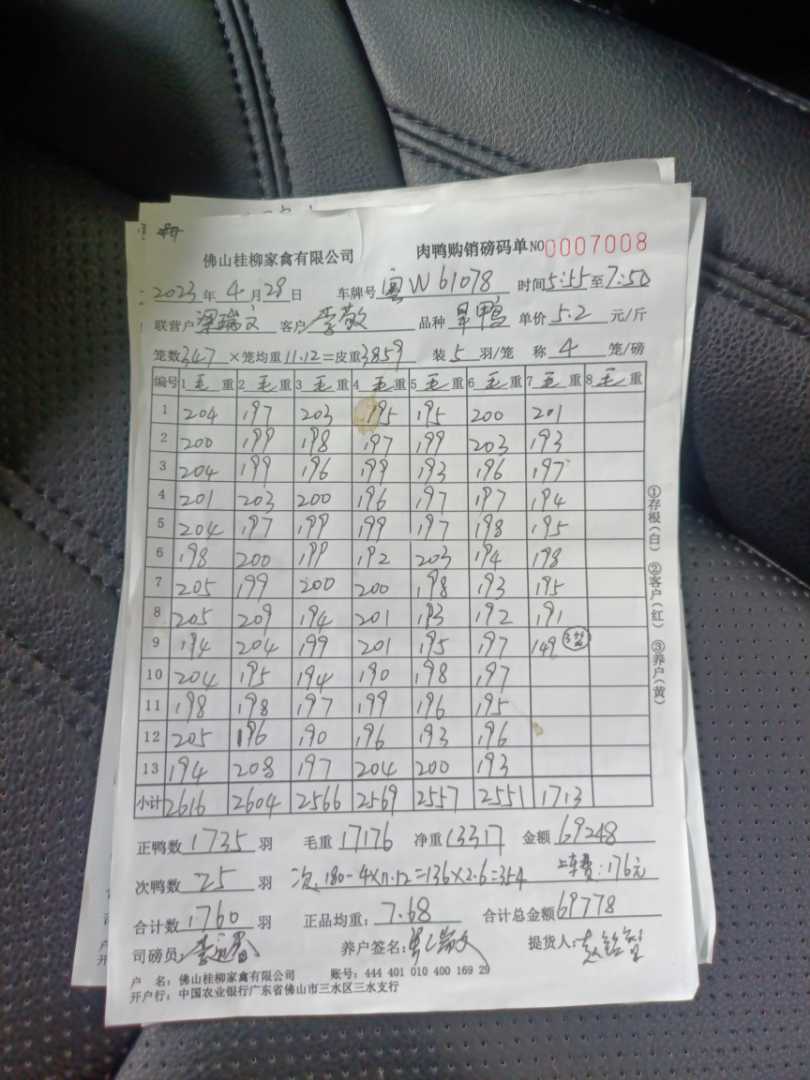 佛山桂柳家禽有限公司 肉鸭购销磅码单 NO 0007008
2023年4月28日 车牌号 粤W61078 时间5:55至7:50
联营户 梁瑞文 客户 李敬 品种 旱鸭 单价 5.2 元/斤
笼数347 ×笼均重11.12=皮重3859 装5羽/笼 称4笼/磅
编号 1毛重 2毛重 3毛重 4毛重 5毛重 6毛重 7毛重 8毛重
1 204 197 203 195 195 200 201
2 200 199 198 197 199 203 193
3 204 199 196 199 193 196 197
4 201 203 200 196 197 197 194
5 204 197 199 199 197 198 195
6 198 200 199 192 203 194 198
7 205 199 200 200 198 193 195
8 205 209 194 201 193 192 191
9 194 204 199 201 195 197 149
10 204 195 194 190 198 197
11 198 198 197 199 196 195
12 205 196 190 196 193 196
13 194 208 197 204 200 193
小计 2616 2604 2566 2569 2557 2551 1713
①存根(白) ②客户(红) ③养户(黄)
正鸭数 1735 羽 毛重 17176 净重 13317 金额 69248
次鸭数 25 羽 次,180-4×11.12=136×2.6=354 上车费:176元
合计数 1760 羽 正品均重: 7.68 合计总金额 69778
司磅员: 养户签名: 提货人:
户 名: 佛山桂柳家禽有限公司 账号: 444 401 010 400 169 29
开户行: 中国农业银行广东省佛山市三水区三水支行